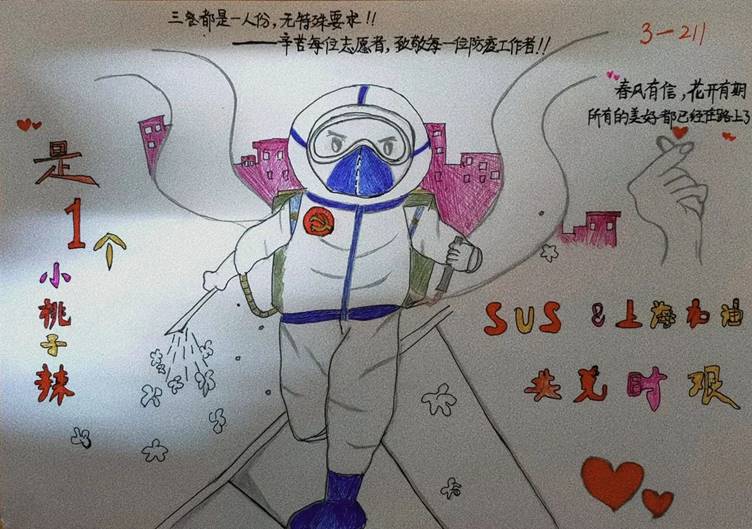 三餐都是一人份，无特殊要求!!
——辛苦每位志愿者，致敬每一位防疫工作者!!
3-211
春风有信，花开有期
所有的美好都已经在路上了
是
1个
小
桃
子
辣
SUS & 上海加油
共克时艰